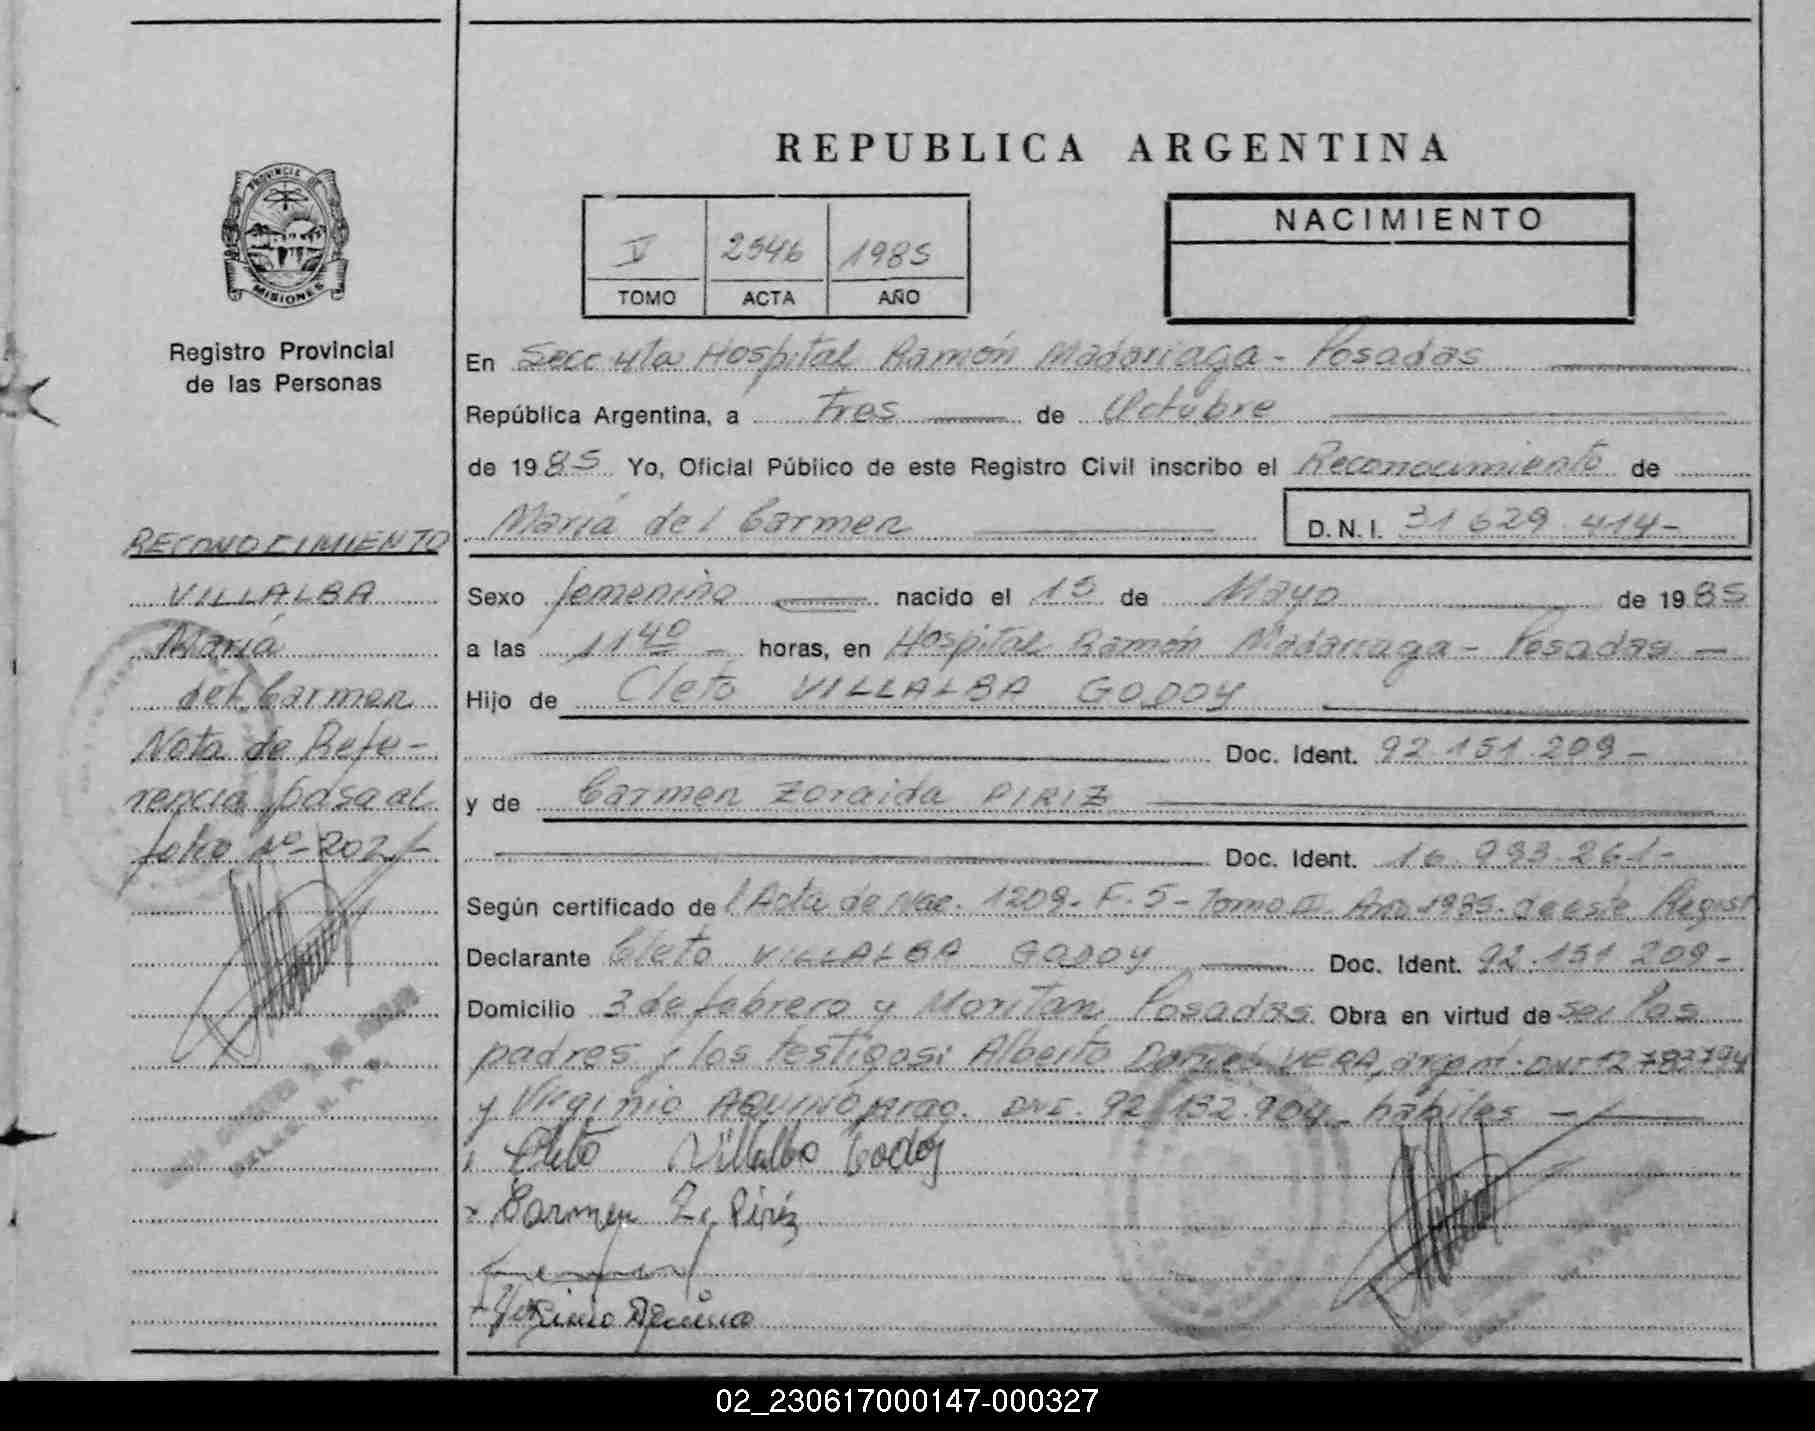 REPUBLICA ARGENTINA
PROVINCIA DE
MISIONES
Registro Provincial
de las Personas
V 2546 1985
TOMO ACTA AÑO
NACIMIENTO
En Secc 4ta Hospital Ramón Madariaga - Posadas
República Argentina, a Tres de Octubre
de 1985 Yo, Oficial Público de este Registro Civil inscribo el Reconocimiento de
María del Carmen D.N.I. 31 629 414-
RECONOCIMIENTO
VILLALBA
María
del Carmen
Nota de Refe-
rencia pasa al
folio Nº 202
Sexo femenino nacido el 15 de Mayo de 1985
a las 11 40 - horas, en Hospital Ramón Madariaga - Posadas -
Hijo de Cleto VILLALBA GODOY
Doc. Ident. 92.151.209-
y de Carmen Zoraida PIRIZ
Doc. Ident. 16.983.261-
Según certificado de l Acta de Nac. 1209- F. 5- Tomo III Año 1985- de este Regist
Declarante Cleto VILLALBA GODOY Doc. Ident. 92.151 209-
Domicilio 3 de febrero y Moritan Posadas Obra en virtud de ser los
padres y los testigos: Alberto Daniel VERA, argent. DNI 12 782794
y Virginio AQUINO parag. DNI. 92 132.904 hábiles -
Cleto Villalba Godoy
Carmen Z. Piriz
Virginio Aquino
02_230617000147-000327